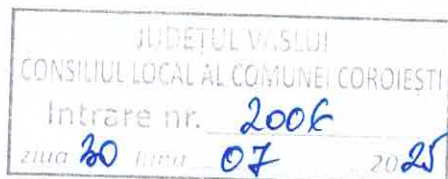 JUDEȚUL VASLUI
CONSILIUL LOCAL AL COMUNEI COROIEȘTI
Intrare nr. 2006
ziua 30 luna 07 2025